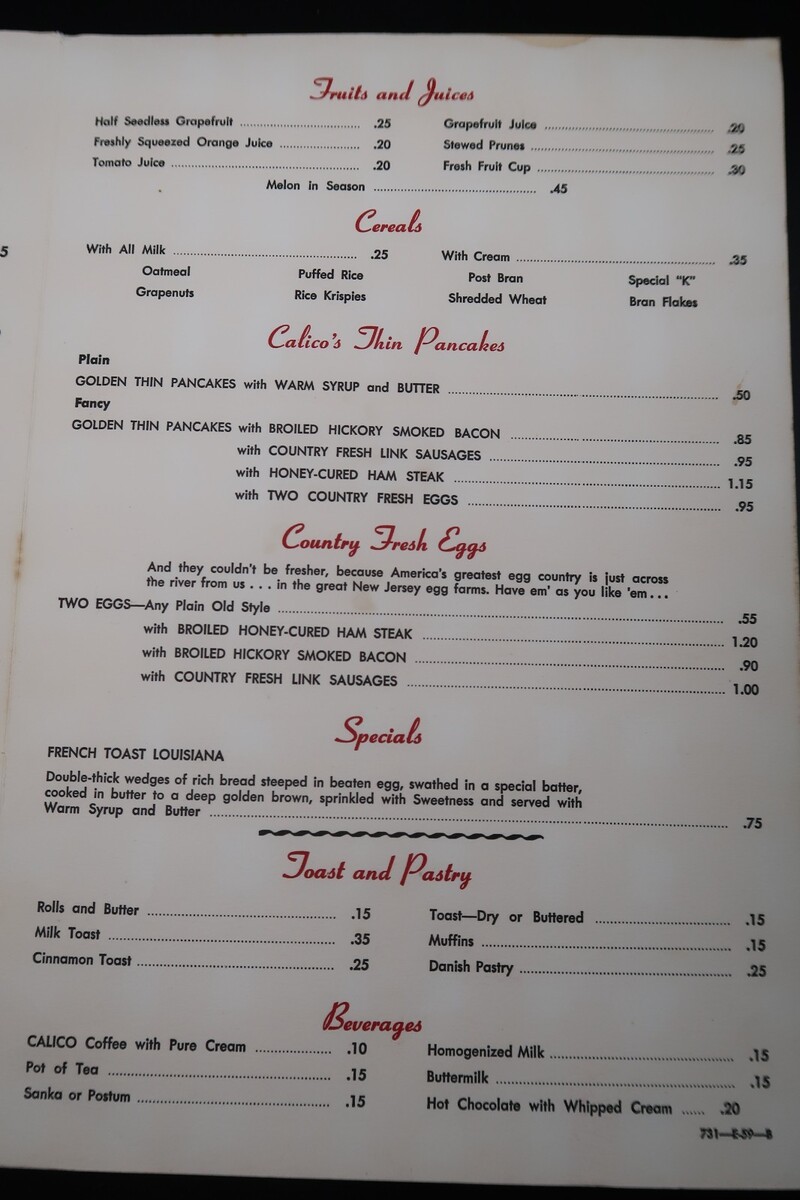 Fruits and Juices
Half Seedless Grapefruit .25 Grapefruit Juice .20
Freshly Squeezed Orange Juice .20 Stewed Prunes .25
Tomato Juice .20 Fresh Fruit Cup .30
Melon in Season .45
Cereals
5
With All Milk .25 With Cream .35
Oatmeal Puffed Rice Post Bran Special "K"
Grapenuts Rice Krispies Shredded Wheat Bran Flakes
Calico's Thin Pancakes
Plain
GOLDEN THIN PANCAKES with WARM SYRUP and BUTTER .50
Fancy
GOLDEN THIN PANCAKES with BROILED HICKORY SMOKED BACON .85
with COUNTRY FRESH LINK SAUSAGES .95
with HONEY-CURED HAM STEAK 1.15
with TWO COUNTRY FRESH EGGS .95
Country Fresh Eggs
And they couldn't be fresher, because America's greatest egg country is just across
the river from us . . . in the great New Jersey egg farms. Have em' as you like 'em . . .
TWO EGGS—Any Plain Old Style .55
with BROILED HONEY-CURED HAM STEAK 1.20
with BROILED HICKORY SMOKED BACON .90
with COUNTRY FRESH LINK SAUSAGES 1.00
Specials
FRENCH TOAST LOUISIANA
Double-thick wedges of rich bread steeped in beaten egg, swathed in a special batter,
cooked in butter to a deep golden brown, sprinkled with Sweetness and served with
Warm Syrup and Butter .75
Toast and Pastry
Rolls and Butter .15 Toast—Dry or Buttered .15
Milk Toast .35 Muffins .15
Cinnamon Toast .25 Danish Pastry .25
Beverages
CALICO Coffee with Pure Cream .10 Homogenized Milk .15
Pot of Tea .15 Buttermilk .15
Sanka or Postum .15 Hot Chocolate with Whipped Cream .20
731—E-59—B